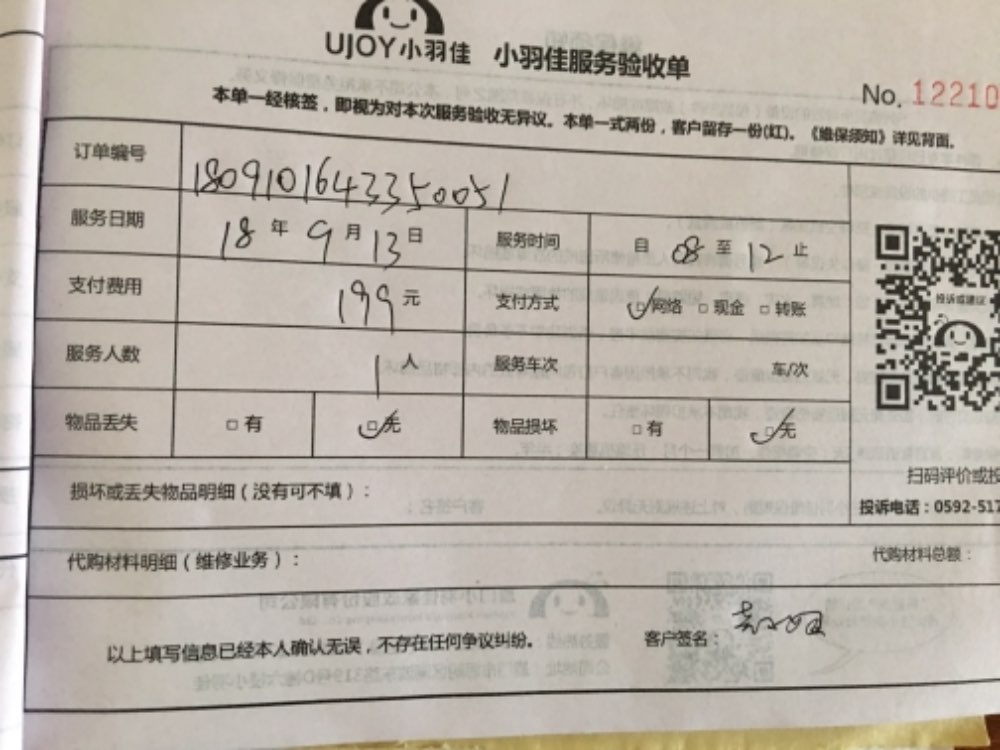 UJOY小羽佳 小羽佳服务验收单
No. 12210
本单一经核签，即视为对本次服务验收无异议。本单一式两份，客户留存一份(红)。《维保须知》详见背面。
订单编号 1809101643350051
服务日期 18 年 9 月 13 日 服务时间 自 08 至 12 止
支付费用 199 元 支付方式 ☑网络 □现金 □转账
服务人数 1 人 服务车次 车/次
物品丢失 □有 ☑无 物品损坏 □有 ☑无
投诉或建议
扫码评价或投
投诉电话：0592-517
损坏或丢失物品明细（没有可不填）：
代购材料明细（维修业务）： 代购材料总额：
以上填写信息已经本人确认无误，不存在任何争议纠纷。 客户签名：